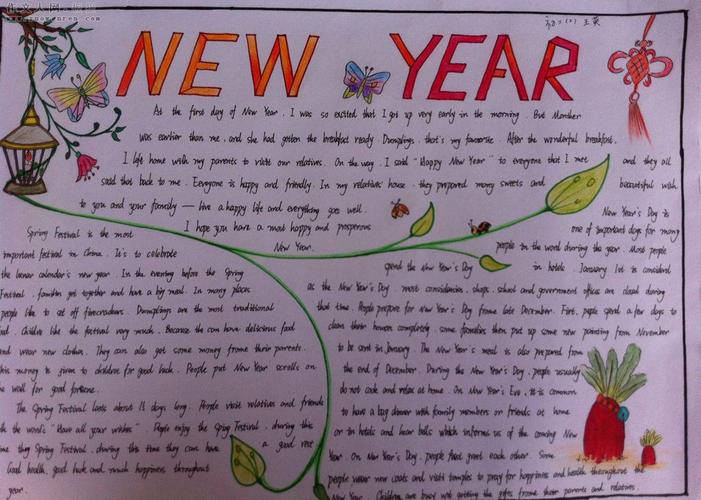 NEW YEAR
初二(1) 王英
At the first day of New Year, I was so excited that I got up very early in the morning. But Monther
was earlier than me, and she had gotten the breakfast ready. Dumplings, that's my favourite. After the wonderful breakfast,
I left home with my parents to visit our relatives. On the way, I said "Happy New Year" to everyone that I met and they all
said that back to me. Everyone is happy and friendly. In my relatives' house, they prepared many sweets and beautiful wish
to you and your family — live a happy life and everything goes well.
I hope you have a most happy and prosperous
New Year.
Spring Festival is the most
important festival in China. It's to celebrate
the lunar calendar's new year. In the evening before the Spring
Festival, families get together and have a big meal. In many places
people like to set off firecrackers. Dumplings are the most traditional
food. Children like the festival very much, Because the can have delicious food
and wear new clothes. They can also get some money frome their parents.
This money is given to children for good luck. People put New Year scrolls on
the wall for good fortune.
The Spring Festival lasts about 15 days long. People visit relatives and friends
with the words "Have all your wishes". People enjoy the Sping Festival, during this
time they Spring Festival, during this time they can have a good rest
Good health, good luck and much happiness throughout
year.
New Year's Day is
one of important days for many
people in the word during the year. Most people
spend the New Year's Day in hotels. January 1st is considered
as the New Year's Day. most considancies, shops, school and government offices are closed during
that time. People prepare for New Year's Day frome late December. First, people spend a few days to
clean their houses completely. some families then put up some new painting from November
to be sent in January. The New Year's meal is also prepared from
the end of December. During the New Year's Day, people usually
do not cook and relax at home. On New Year's Eve, it is common
to have a bag dinner with family members or friends at home
or in hotels and hear bells which informs us of the coming New
Year. On New Year's Day, people feast greet each other. Some
people wear new coats and visit temples to pray for happiness and health throughout the
New Year. Children are busy with getting the gifts frome their parents and relatives.